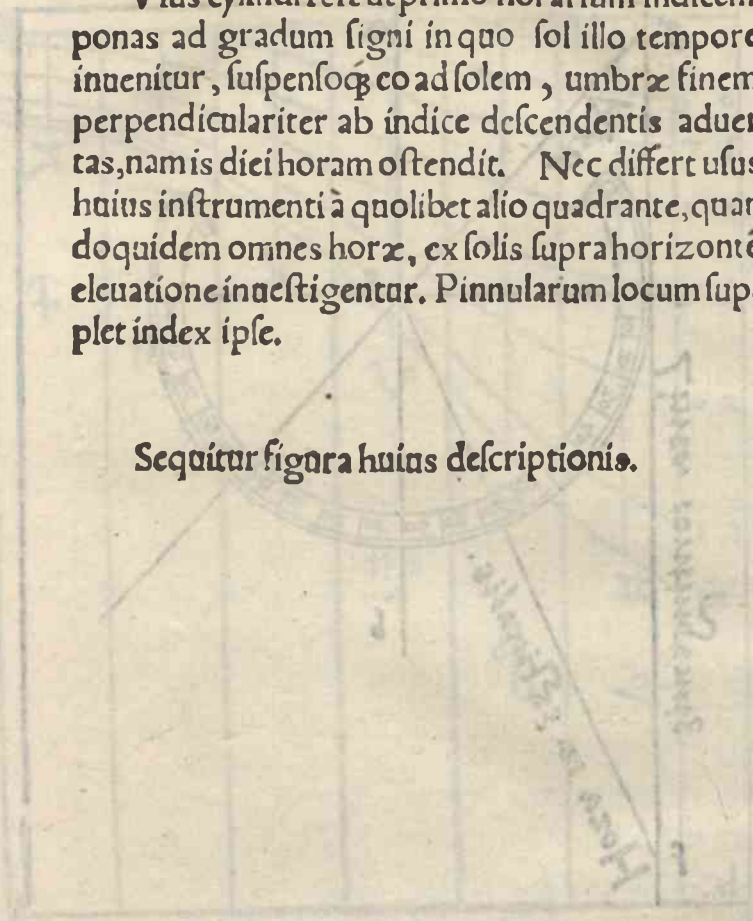 Vsus cylindri est ut primo horarium indicem
ponas ad gradum signi in quo ſol illo tempore
inuenitur, ſuſpenſoqꝫ eo ad ſolem, umbræ finem
perpendiculariter ab indice deſcendentis aduer
tas, nam is diei horam oſtendit. Nec differt uſus
huius inſtrumenti à quolibet alio quadrante, quan
doquidem omnes horæ, ex ſolis ſupra horizontē
eleuatione inueſtigentur. Pinnularum locum ſup
plet index ipſe.
Sequitur figura huius deſcriptionis.